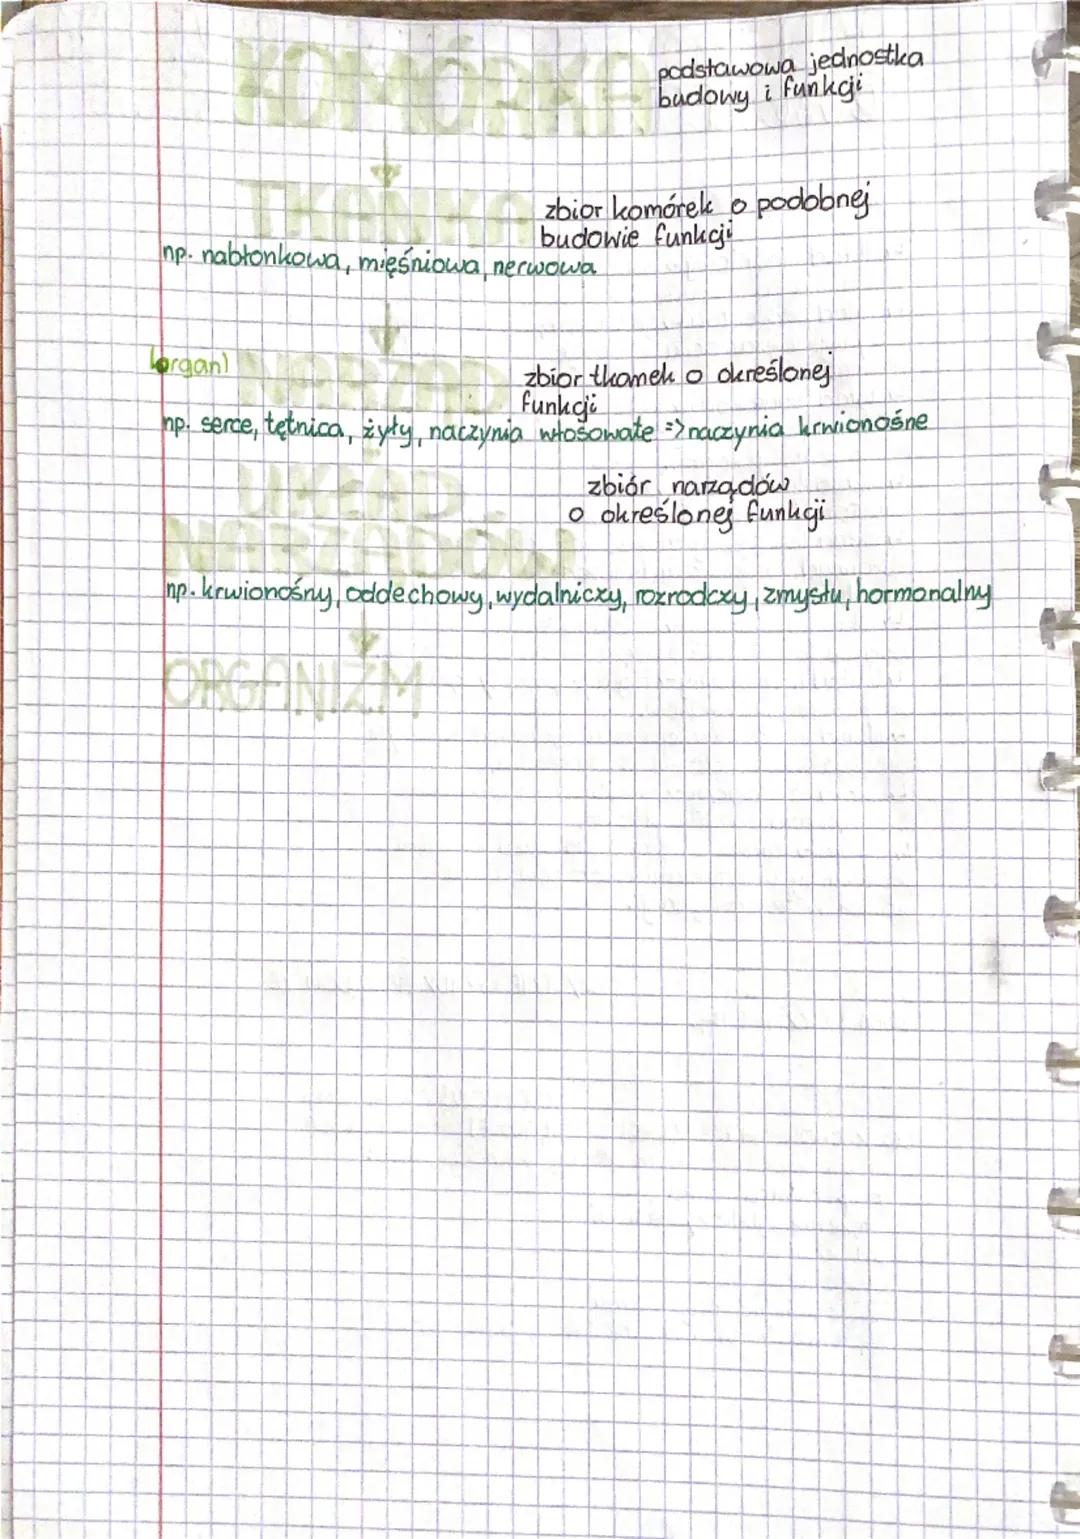 KOMÓRKA podstawowa jednostka
budowy i funkcji
TKANKA zbior komórek o podobnej
budowie funkcji
np. nabłonkowa, mięśniowa, nerwowa
(organ) NARZĄD zbior tkamek o określonej
funkcji
np. serce, tętnica, żyły, naczynia włosowate => naczynia krwionośne
UKŁAD zbiór narządów
NARZĄDÓW o określonej funkcji
np. krwionośny, oddechowy, wydalniczy, rozrodczy, zmysłu, hormonalny
ORGANIZM